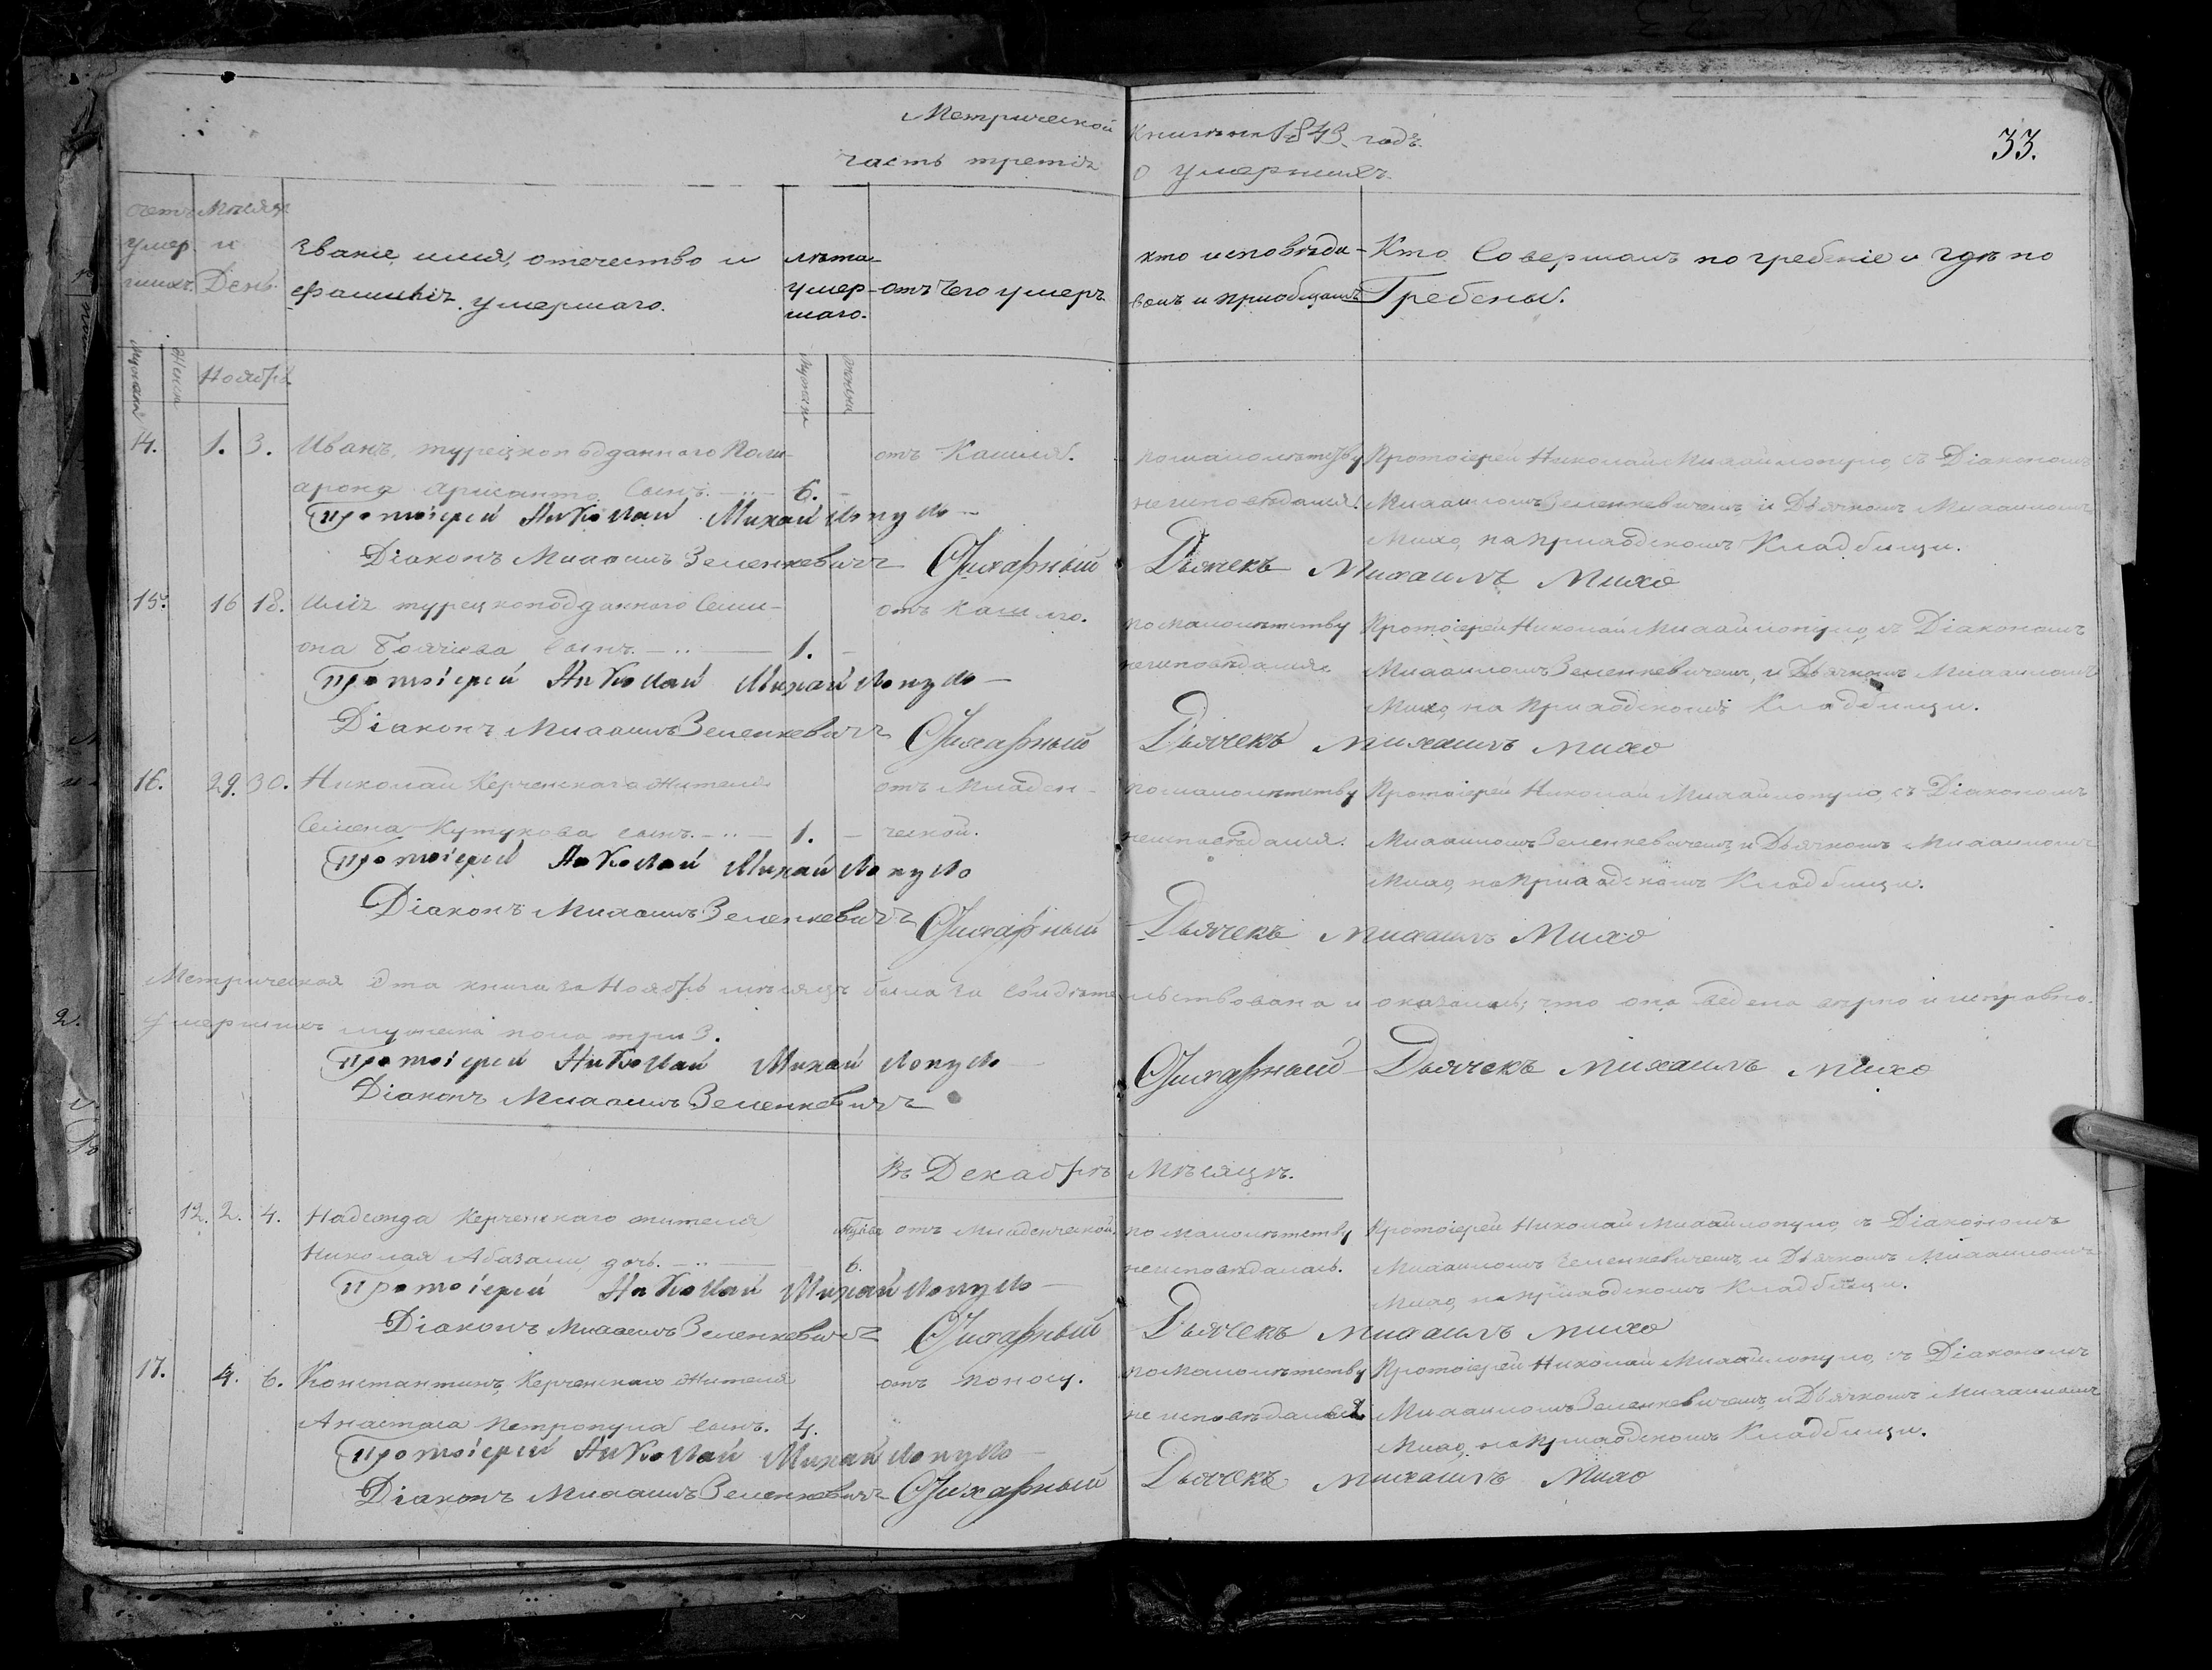 Метрической книги на 1843 годъ
33.
часть третія о умершихъ
счетъ умершихъ
Мѣсяцъ и День.
званіе, имя, отечество и фамилія умершаго.
лѣта умершаго.
отъ чего умеръ
кто исповѣдывалъ и пріобщалъ
Кто Совершалъ погребеніе и гдѣ погребены.
Мужска
Женска
Ноябрь
Мужска
Женска
14. 1. 3. Иванъ, турецкоподданного Поли- отъ Кашля. по малолѣтству Протоіерей Николай Михайлопуло, съ Діакономъ
сынъ. 6. неисповѣдался. Михаиломъ Зеленкевичемъ, и Дьячкомъ Михаиломъ
Протоіерей Николай Михайлопуло
Михо, на приходскомъ Кладбищи.
Діаконъ Михаилъ Зеленкевичъ Дьячекъ Михаилъ Михо
15. 16 18. Илія турецкоподданного Семи- отъ кашлю. по малолѣтству Протоіерей Николай Михайлопуло, съ Діакономъ
она Боячіева сынъ. 1. неисповѣдался Михаиломъ Зеленкевичемъ, и Дьячкомъ Михаиломъ
Протоіерей Николай Михайлопуло
Михо, на приходскомъ Кладбищи.
Діаконъ Михаилъ Зеленкевичъ Дьячекъ Михаилъ Михо
16. 29. 30. Николай Керченскаго Жителя отъ Младен- по малолѣтству Протоіерей Николай Михайлопуло, съ Діакономъ
Семена Кутукова сынъ. 1. ческой. неисповѣдался. Михаиломъ Зеленкевичемъ, и Дьячкомъ Михаиломъ
Протоіерей Николай Михайлопуло
Михо, на приходскомъ Кладбищи.
Діаконъ Михаилъ Зеленкевичъ Дьячекъ Михаилъ Михо
Метрическая эта книга за Ноябрь мѣсяцъ была за свидѣтельствована и оказалась, что она ведена вѣрно и исправно.
умершихъ мужеска пола три 3.
Протоіерей Николай Михайлопуло Дьячекъ Михаилъ Михо
Діаконъ Михаилъ Зеленкевичъ
Въ Декабрѣ Мѣсяцѣ.
12. 2. 4. Надежда Керченскаго жителя отъ Младенческой. по малолѣтству Протоіерей Николай Михайлопуло, съ Діакономъ
Николая Абазали дочь. 6. неисповѣдалась. Михаиломъ Зеленкевичемъ, и Дьячкомъ Михаиломъ
Протоіерей Николай Михайлопуло
Михо, на приходскомъ Кладбищи.
Діаконъ Михаилъ Зеленкевичъ Дьячекъ Михаилъ Михо
17. 4. 6. Константинъ, Керченскаго Жителя отъ поносу. по малолѣтству Протоіерей Николай Михайлопуло, съ Діакономъ
Анастаса Петропула сынъ. 4. не исповѣдался Михаиломъ Зеленкевичемъ, и Дьячкомъ Михаиломъ
Протоіерей Николай Михайлопуло
Михо, на приходскомъ Кладбищи.
Діаконъ Михаилъ Зеленкевичъ Дьячекъ Михаилъ Михо